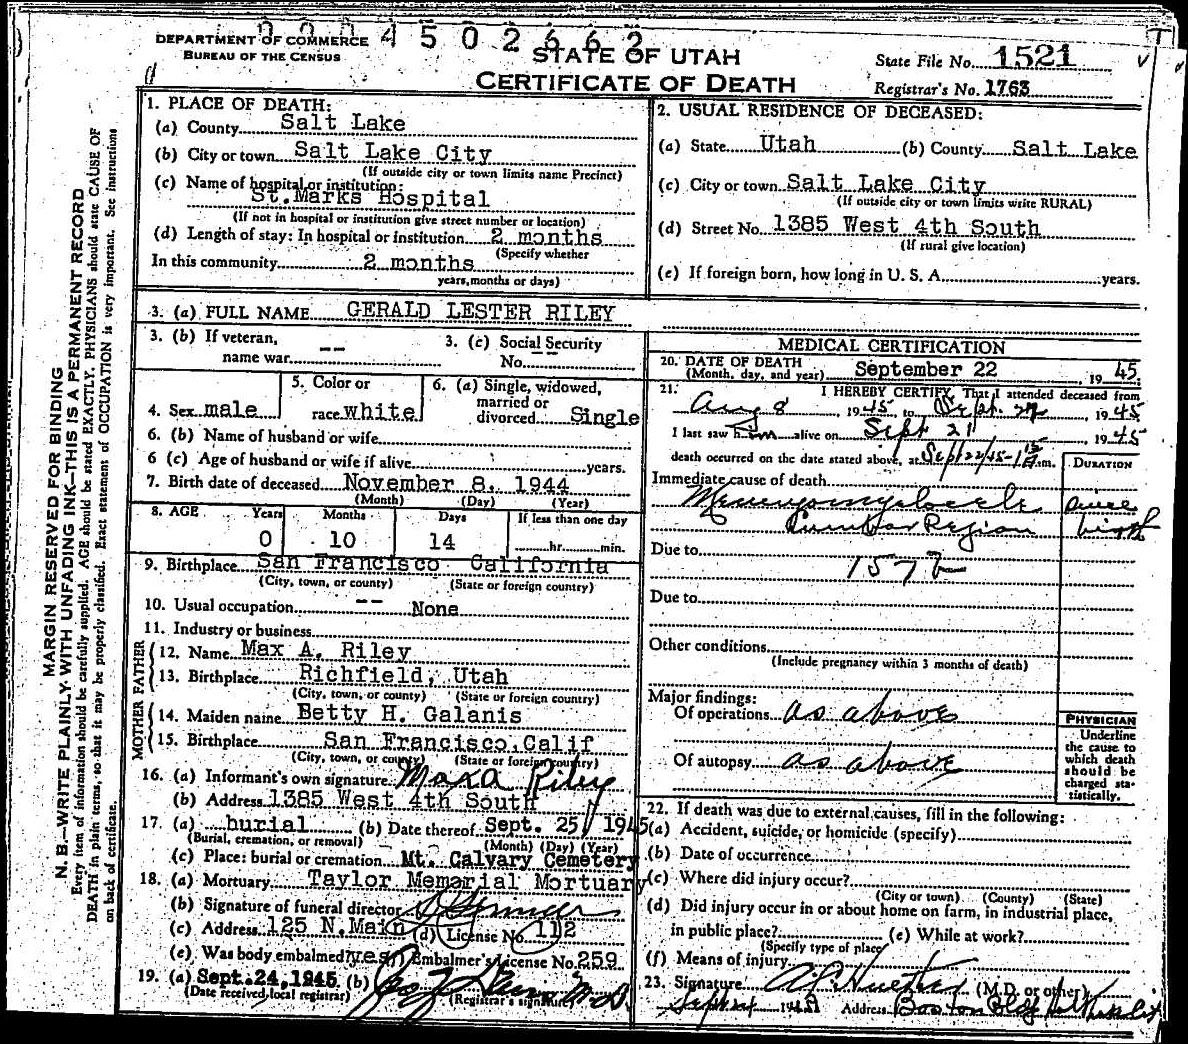 0 0 0 4 5 0 2 6 6 2
DEPARTMENT OF COMMERCE
BUREAU OF THE CENSUS
STATE OF UTAH
CERTIFICATE OF DEATH
State File No. 1521
Registrar's No. 1763
MARGIN RESERVED FOR BINDING
N. B.—WRITE PLAINLY, WITH UNFADING INK—THIS IS A PERMANENT RECORD
Every item of information should be carefully supplied. AGE should be stated EXACTLY. PHYSICIANS should state CAUSE OF
DEATH in plain terms, so that it may be properly classified. Exact statement of OCCUPATION is very important. See instructions
on back of certificate.
1. PLACE OF DEATH:
(a) County Salt Lake
(b) City or town Salt Lake City
(If outside city or town limits name Precinct)
(c) Name of hospital or institution:
St.Marks Hospital
(If not in hospital or institution give street number or location)
(d) Length of stay: In hospital or institution 2 months
(Specify whether
In this community 2 months
years, months or days)
2. USUAL RESIDENCE OF DECEASED:
(a) State Utah (b) County Salt Lake
(c) City or town Salt Lake City
(If outside city or town limits write RURAL)
(d) Street No. 1385 West 4th South
(If rural give location)
(e) If foreign born, how long in U. S. A. years.
3. (a) FULL NAME GERALD LESTER RILEY
3. (b) If veteran, name war -- 3. (c) Social Security No. --
4. Sex male 5. Color or race white 6. (a) Single, widowed, married or divorced Single
6. (b) Name of husband or wife
6 (c) Age of husband or wife if alive years.
7. Birth date of deceased November 8, 1944
(Month) (Day) (Year)
8. AGE Years Months Days If less than one day
0 10 14 hr. min.
9. Birthplace San Francisco California
(City, town, or county) (State or foreign country)
10. Usual occupation -- None
11. Industry or business
FATHER
12. Name Max A. Riley
13. Birthplace Richfield, Utah
(City, town, or county) (State or foreign country)
MOTHER
14. Maiden name Betty H. Galanis
15. Birthplace San Francisco, Calif
(City, town, or county) (State or foreign country)
16. (a) Informant's own signature Max A Riley
(b) Address 1385 West 4th South
17. (a) burial (b) Date thereof Sept. 25, 1945
(Burial, cremation, or removal) (Month) (Day) (Year)
(c) Place: burial or cremation Mt. Calvary Cemetery
18. (a) Mortuary Taylor Memorial Mortuary
(b) Signature of funeral director
(c) Address 125 N. Main (d) License No. 112
(e) Was body embalmed? yes Embalmer's License No. 259
19. (a) Sept. 24, 1945 (b)
(Date received, local registrar) (Registrar's signature)
MEDICAL CERTIFICATION
20. DATE OF DEATH
(Month, day, and year) September 22, 1945
21. I HEREBY CERTIFY, That I attended deceased from
Aug 8, 1945 to Sept. 22, 1945
I last saw him alive on Sept 21, 1945
death occurred on the date stated above, at Sept 22/45-1 m.
DURATION
Immediate cause of death
Meningomyelocele since
Lumbar Region birth
Due to 157
Due to
Other conditions
(Include pregnancy within 3 months of death)
Major findings:
Of operations as above
Of autopsy as above
PHYSICIAN
Underline
the cause to
which death
should be
charged sta-
tistically.
22. If death was due to external causes, fill in the following:
(a) Accident, suicide, or homicide (specify)
(b) Date of occurrence
(c) Where did injury occur?
(City or town) (County) (State)
(d) Did injury occur in or about home on farm, in industrial place,
in public place? (e) While at work?
(Specify type of place)
(f) Means of injury
23. Signature (M.D. or other)
Address